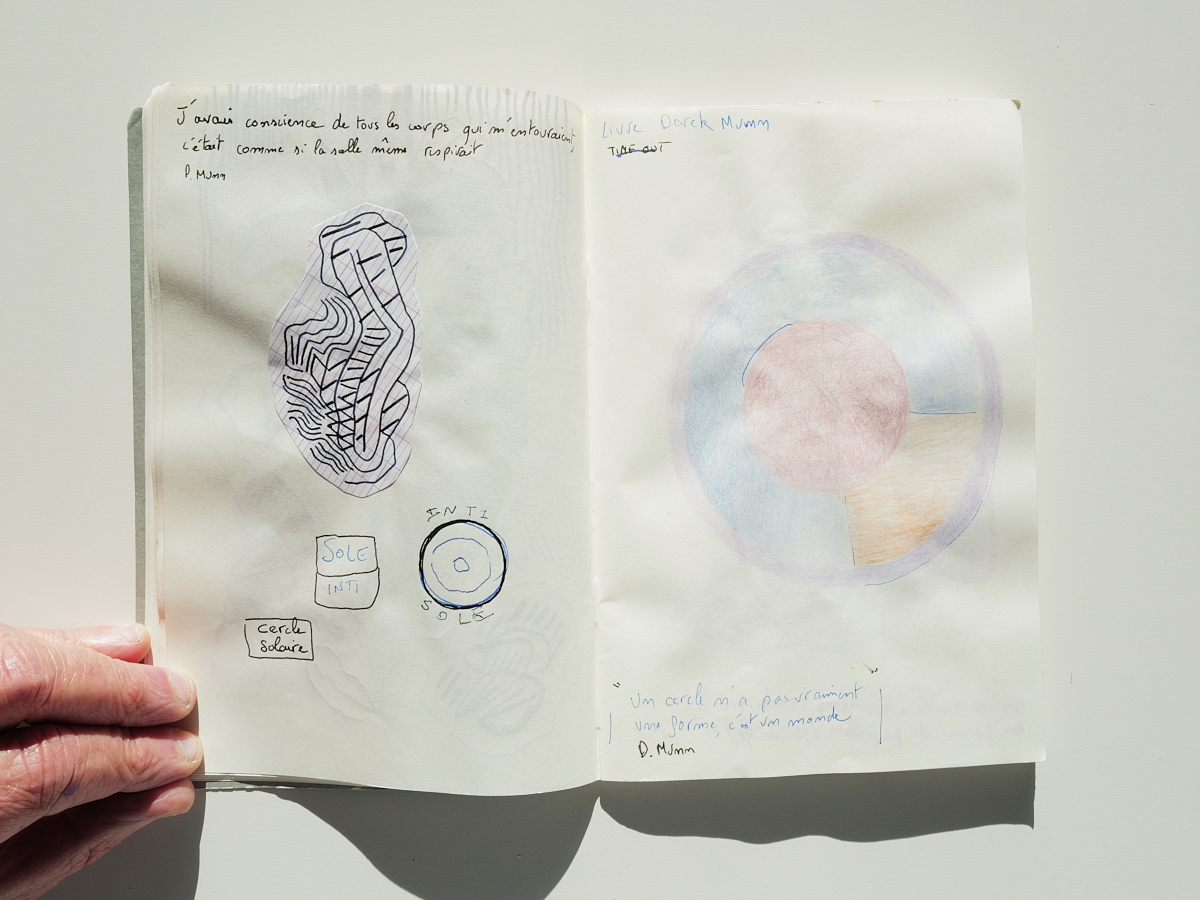 J'avais conscience de tous les corps qui m'entouraient,
c'était comme si la salle même respirait
D. Mumm
INTI
SOLE
SOLE
INTI
cercle
solaire
Livre Darck Mumm
TIME OUT
"Un cercle n'a pas vraiment
une forme, c'est un monde"
D. Mumm